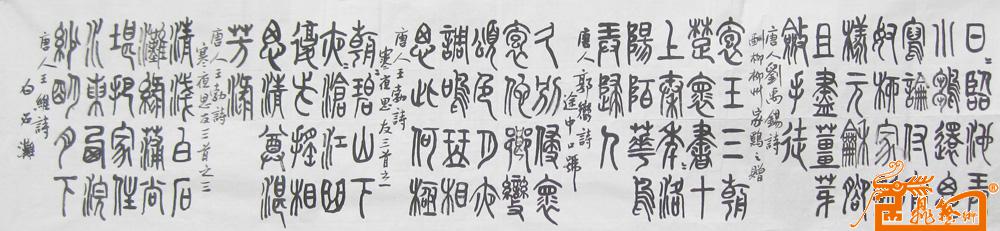 日〃臨池弄
小雛還思
寫論付官
奴柳家新
樣元龢腳
且盡薑芽
斂手徒
唐劉禹錫詩
酬柳柳州家鷄之贈
抱玉三朝
楚褱書十
上秦年〃洛
陽陌華鳥
弄歸人
唐人郭鄖詩
途中口號
久別侵褱
抱他鄉變
頌色月夜
調鳴琴相
思此何極
唐人王勃詩
寒夜思友三首之一
朝〃碧山下
夜〃滄江曲
復此遙相
思清尊湛
芳淥
唐人王勃詩
寒夜思友三首之三
清淺白石
灘綠蒲尚
堪把家住
水東西浣
紗明月下
唐人王維詩
白石灘